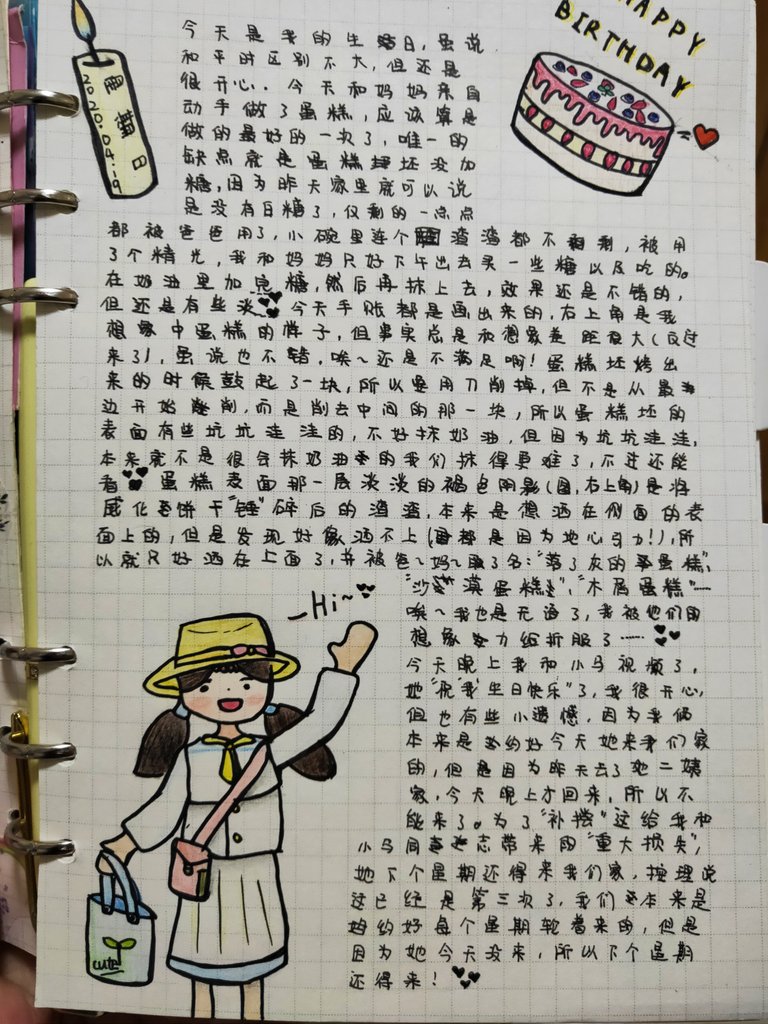 HAPPY
BIRTHDAY
星期日
2020.04.19
今天是我的生日,虽说
和平时区别不大,但还是
很开心.今天和妈妈亲自
动手做了蛋糕,应该算是
做的最好的一次了,唯一的
缺点就是蛋糕坯没加
糖,因为昨天家里就可以说
是没有白糖了,仅剩的一点点
都被爸爸用了,小碗里连个渣渣都不剩,被用
了个精光,我和妈妈只好下午出去买一些糖以及吃的。
在奶油里加点糖,然后再抹上去,效果还是不错的,
但还是有些淡 今天手账都是画出来的,右上角是我
想象中蛋糕的样子,但事实总是和想象差距很大(反过
来3),虽说也不错,唉~还是不满足啊!蛋糕坯烤出
来的时候鼓起了一块,所以要用刀削掉,但不是从最
边开始削,而是削去中间的那一块,所以蛋糕坯的
表面有些坑坑洼洼的,不好抹奶油,但因为坑坑洼洼,
本来就不是很会抹奶油的我们抹得更难了,不过还能
看 蛋糕表面那一层淡淡的褐色阴影(图,右上角)是将
威化饼干"锤"碎后的渣渣,本来是想洒在侧面的表
面上的,但是发现好像洒不上(都是因为地心引力!),所
以就只好洒在上面了,并被爸~妈~取了名:"落了灰的蛋糕",
"沙漠蛋糕"、"木屑蛋糕"……
唉~我也是无语了,我被他们的
想象力给折服了……
Hi~
今天晚上我和小马视频了,
她"祝"我"生日快乐"了,我很开心,
但也有些小遗憾,因为我俩
本来是约好今天她来我们家
的,但是因为昨天去了她二姨
家,今天晚上才回来,所以不
能来了。为了"补偿"这给我和
小马同志带来的"重大损失",
她下个星期还得来我们家,按理说
这已经是第三次了,我们本来是
约好每个星期轮着来的,但是
因为她今天没来,所以下个星期
还得来!
cute